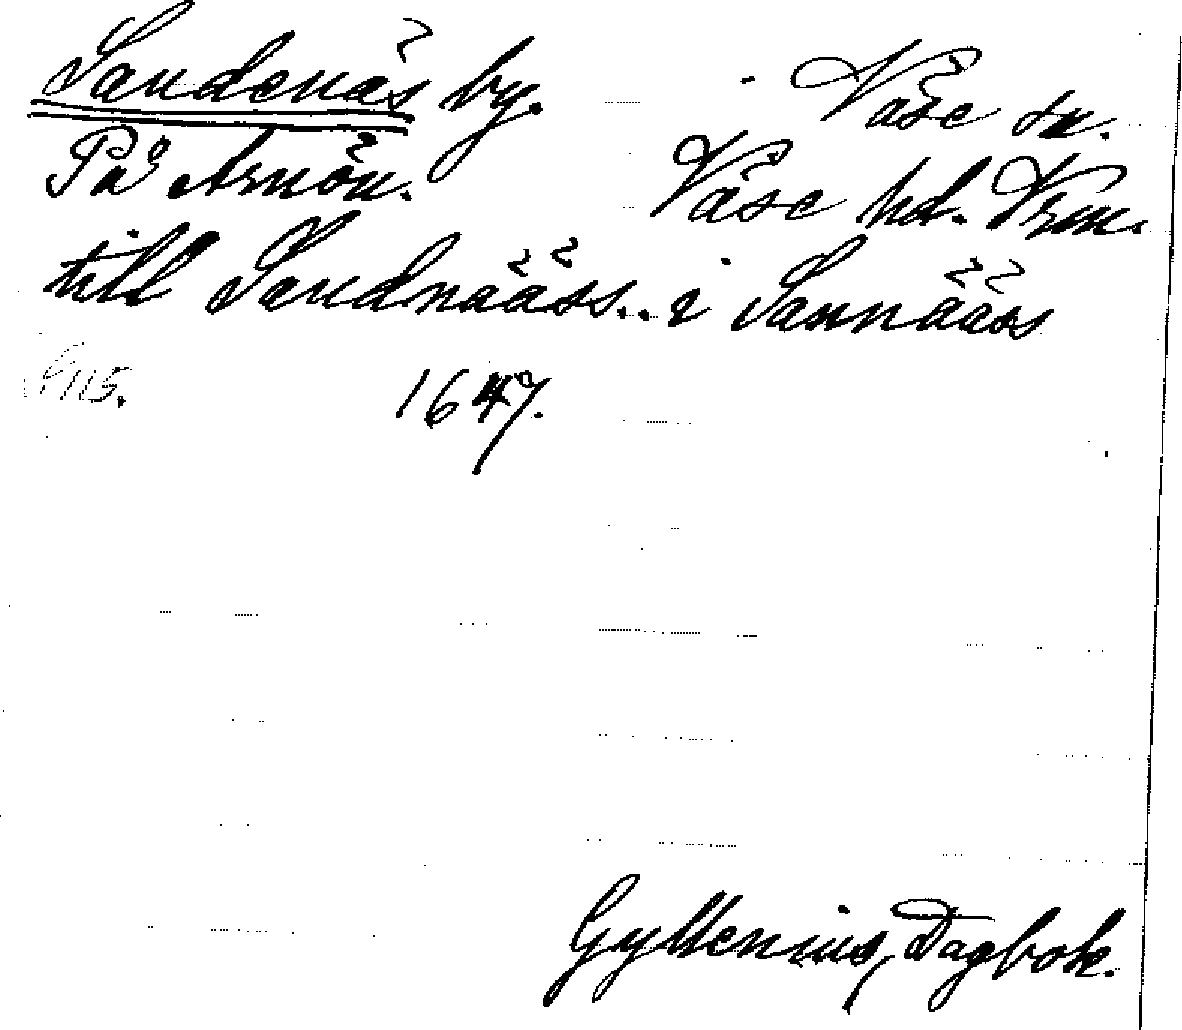 Sandenäs by. Väse sn.
På Arnön. Väse hd. Vrm.
till Sandnääss... i Sannääs
S 115. 1647.
Gyllenius, Dagbok.